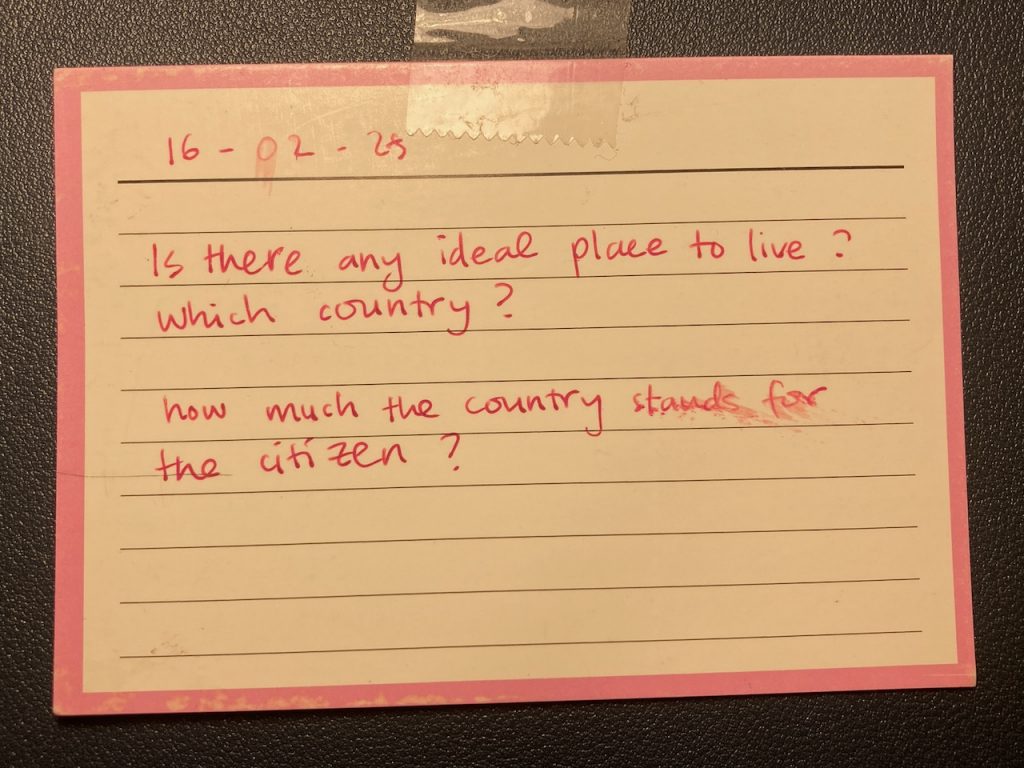 16 - 02 - 25
Is there any ideal place to live ?
which country ?
how much the country stands for
the citizen ?